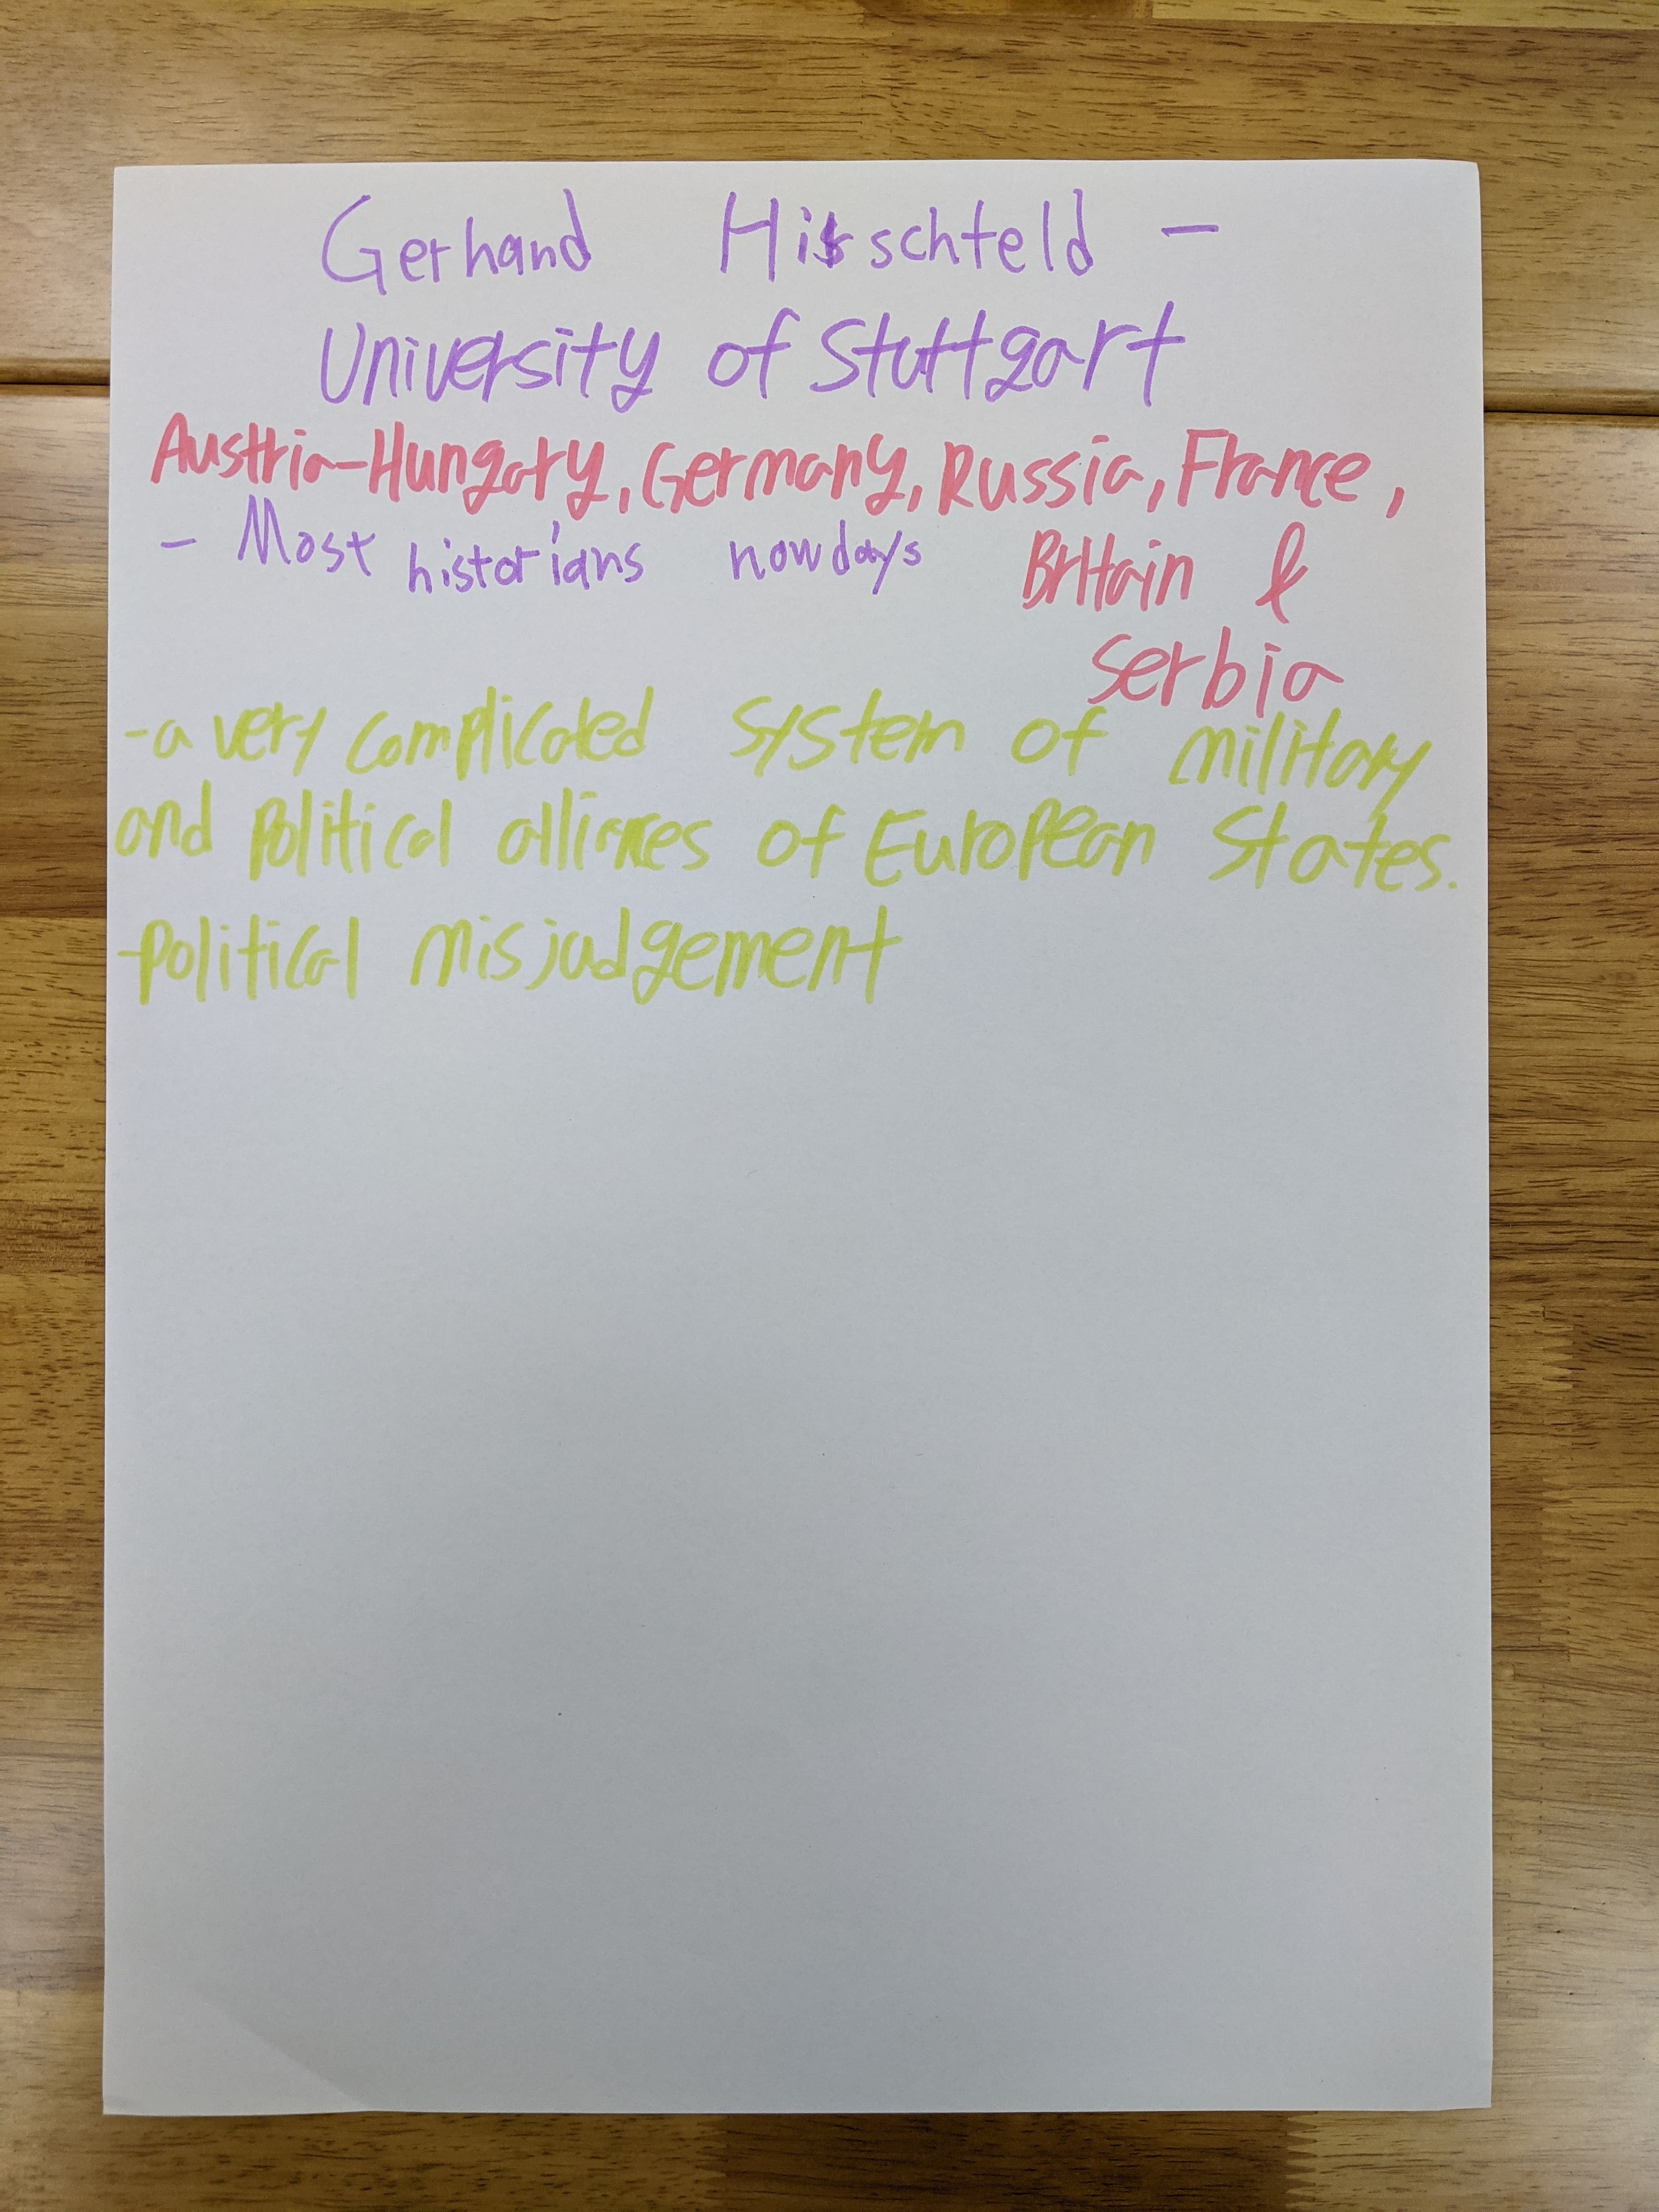 Gerhand Hirschteld -
University of Stuttgart
Austria-Hungary, Germany, Russia, France,
- Most historians nowdays Britain &
Serbia
-a very complicated system of military
and political alliances of European States.
-political misjudgement